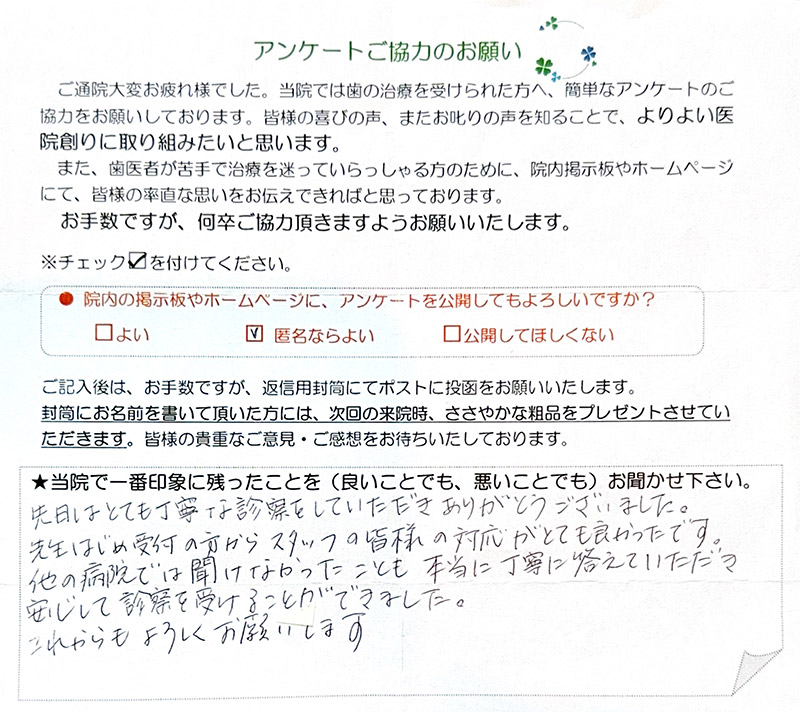 アンケートご協力のお願い
ご通院大変お疲れ様でした。当院では歯の治療を受けられた方へ、簡単なアンケートのご
協力をお願いしております。皆様の喜びの声、またお叱りの声を知ることで、よりよい医
院創りに取り組みたいと思います。
また、歯医者が苦手で治療を迷っていらっしゃる方のために、院内掲示板やホームページ
にて、皆様の率直な思いをお伝えできればと思っております。
お手数ですが、何卒ご協力頂きますようお願いいたします。
※チェック☑を付けてください。
● 院内の掲示板やホームページに、アンケートを公開してもよろしいですか？
□よい ☑ 匿名ならよい □公開してほしくない
ご記入後は、お手数ですが、返信用封筒にてポストに投函をお願いいたします。
封筒にお名前を書いて頂いた方には、次回の来院時、ささやかな粗品をプレゼントさせてい
ただきます。皆様の貴重なご意見・ご感想をお待ちいたしております。
★当院で一番印象に残ったことを（良いことでも、悪いことでも）お聞かせ下さい。
先日はとても丁寧な診察をしていただきありがとうございました。
先生はじめ受付の方からスタッフの皆様の対応がとても良かったです。
他の病院では聞けなかったことも本当に丁寧に答えていただき
安心して診察を受けることができました。
これからもよろしくお願いします